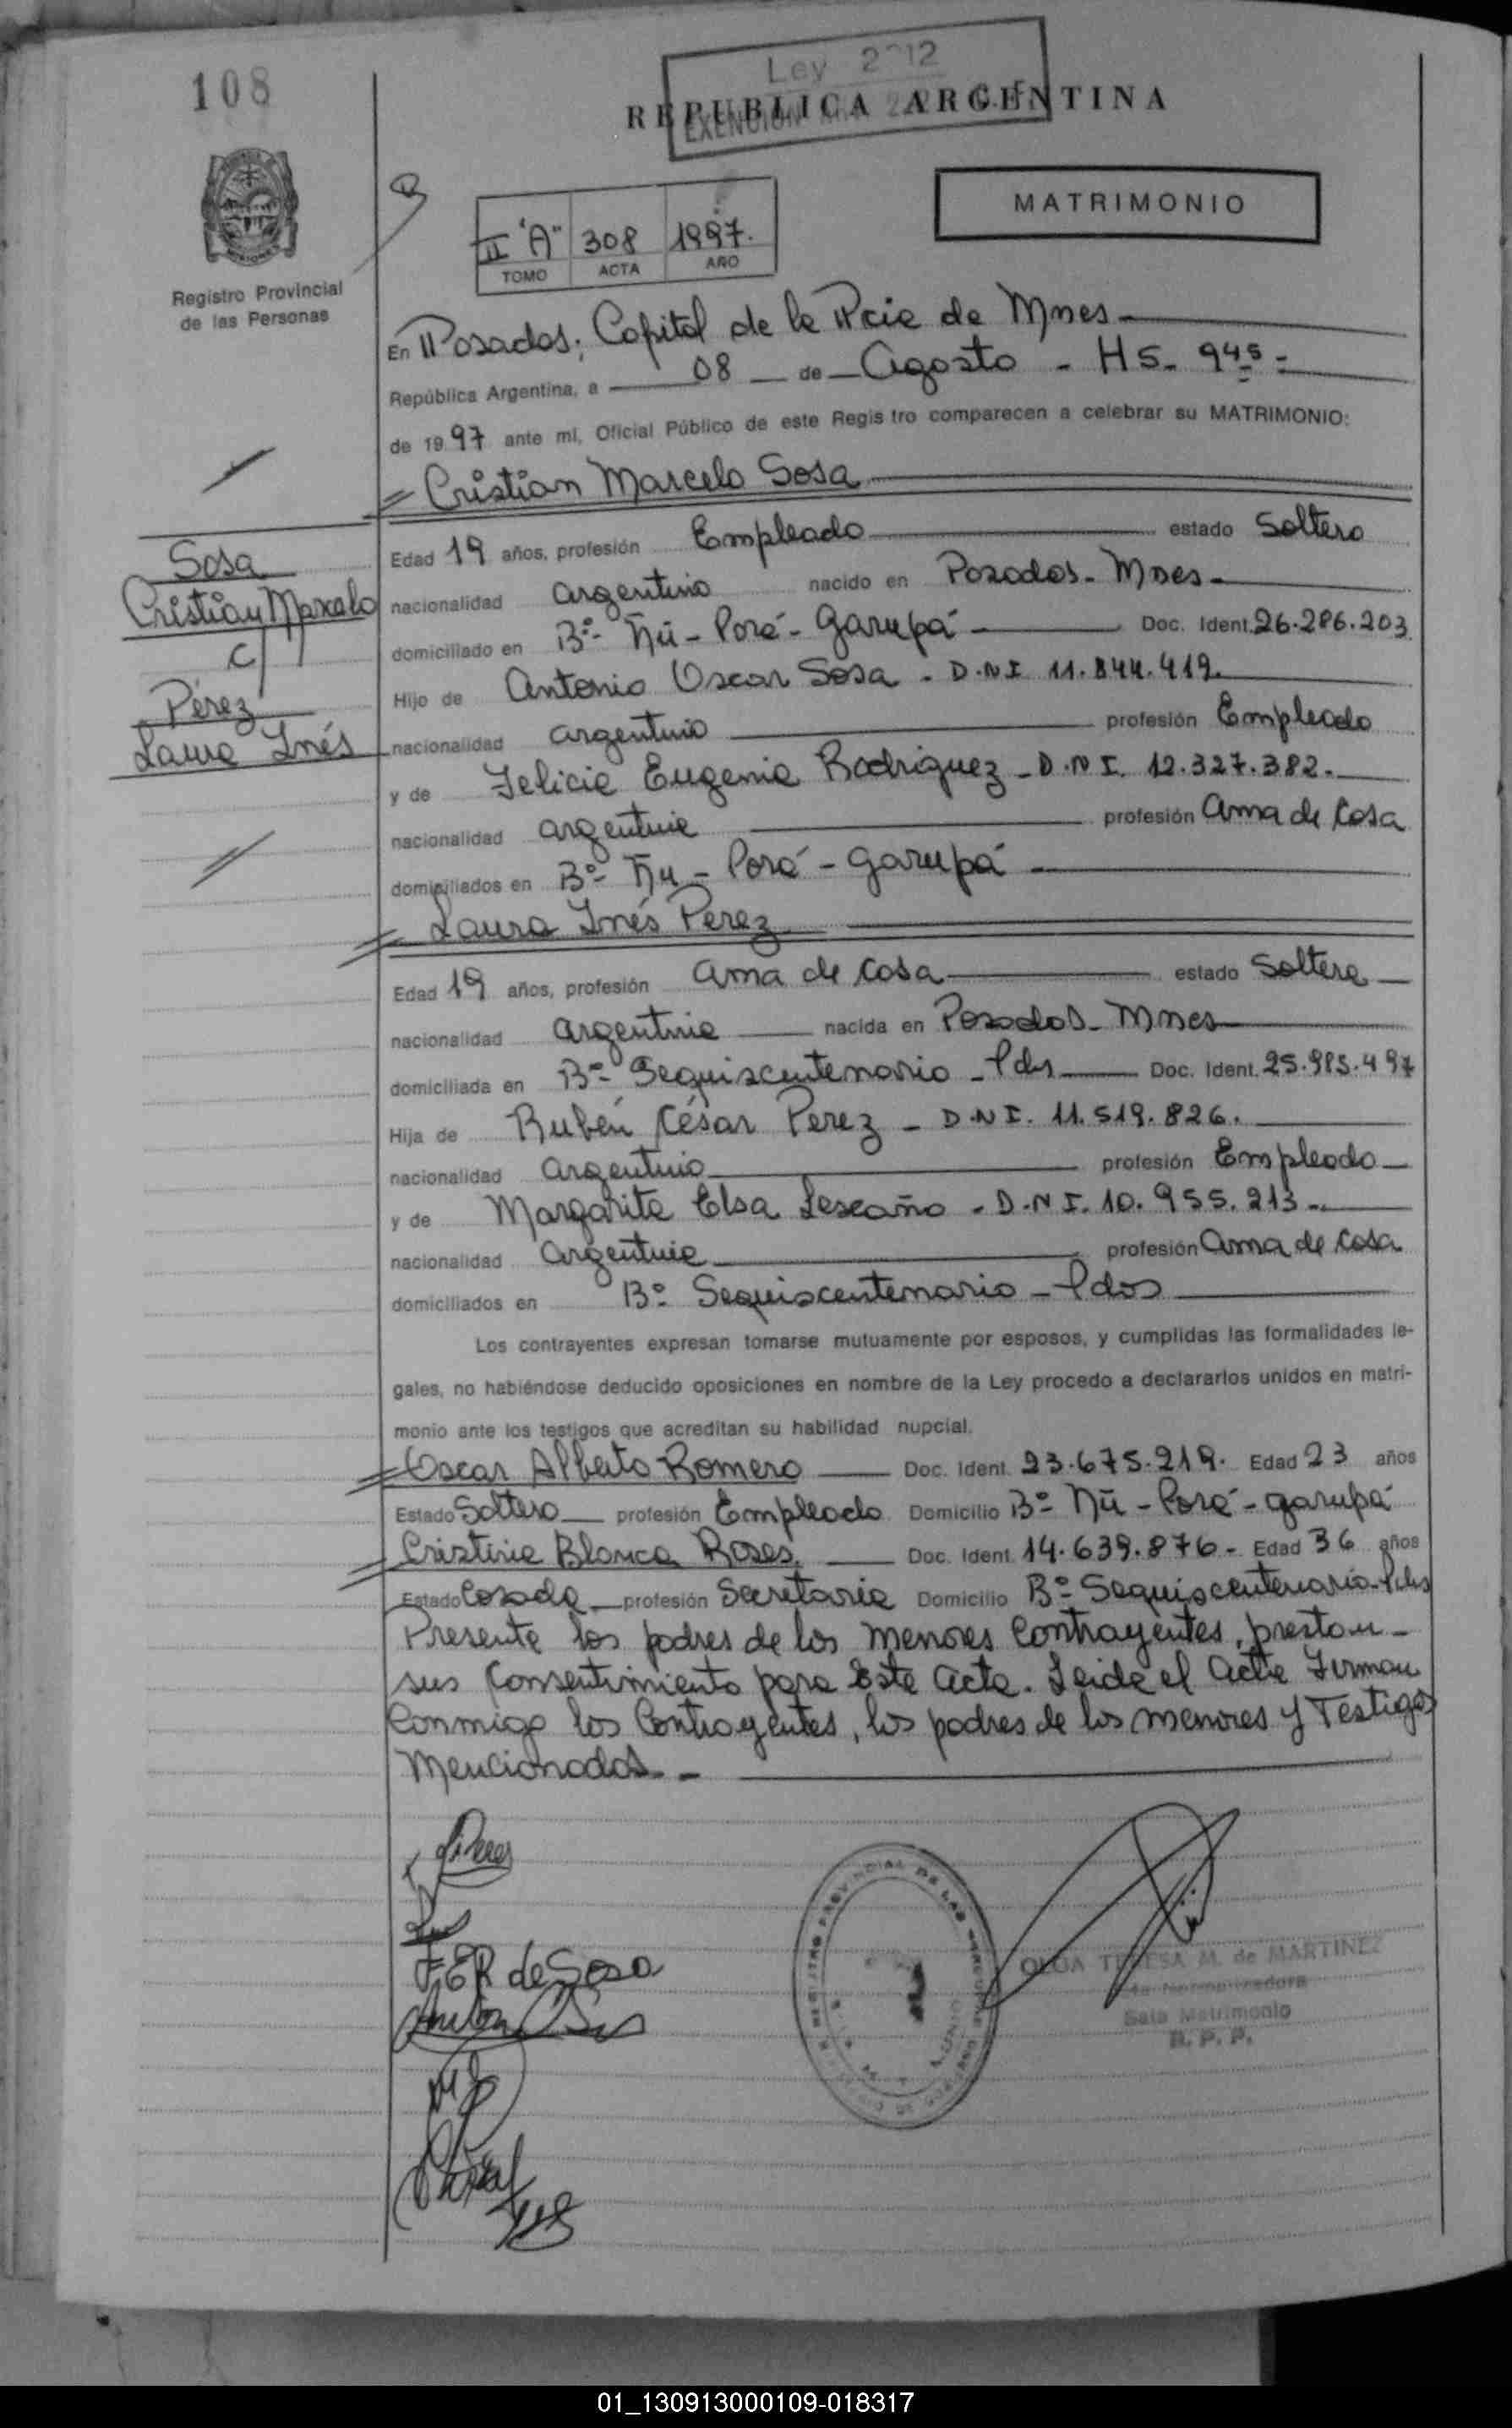 108
Ley 2212
REPUBLICA ARGENTINA
EXENCION
MATRIMONIO
II "A" 308 1997.
TOMO ACTA AÑO
Registro Provincial
de las Personas
En Posadas; Capital de la Pcia de Mnes
República Argentina, a 08 de Agosto - HS. 9 45 -
de 19 97 ante mí, Oficial Público de este Registro comparecen a celebrar su MATRIMONIO:
Cristian Marcelo Sosa
Edad 19 años, profesión Empleado estado Soltero
Sosa
Cristian Marcelo
c/
Pérez
Laura Inés
nacionalidad argentino nacido en Posadas - Mnes -
domiciliado en Bº - Ñu - Porá - Garupá - Doc. Ident. 26.286.203
Hijo de Antonio Oscar Sosa - D.N.I 11.844.419.
nacionalidad argentino profesión Empleado
y de Felicia Eugenia Rodriguez - D.N.I. 12.327.382.
nacionalidad argentina profesión Ama de Casa
domiciliados en Bº - Ñu - Porá - Garupá
Laura Inés Perez
Edad 19 años, profesión Ama de Casa estado Soltera
nacionalidad argentina nacida en Posadas - Mnes
domiciliada en Bº - Sequiscentenario - Pds Doc. Ident. 25.985.497
Hija de Rubén César Perez - D.N.I. 11.519.826.
nacionalidad Argentino profesión Empleado
y de Margarita Elsa Lescaño - D.N.I. 10.955.213 -
nacionalidad Argentina profesión Ama de Casa
domiciliados en Bº Sequiscentenario - Pdas
Los contrayentes expresan tomarse mutuamente por esposos, y cumplidas las formalidades le-
gales, no habiéndose deducido oposiciones en nombre de la Ley procedo a declararlos unidos en matri-
monio ante los testigos que acreditan su habilidad nupcial.
Oscar Alberto Romero Doc. Ident. 23.675.219. Edad 23 años
Estado Soltero profesión Empleado Domicilio Bº - Ñu - Porá - Garupá
Cristina Blanca Roses. Doc. Ident. 14.639.876 - Edad 36 años
Estado Casada profesión Secretaria Domicilio Bº - Sequiscentenario - Pds
Presente los padres de los menores Contrayentes, prestan -
sus Consentimiento para Este Acta. Leida el Acta Firman
Conmigo los Contrayentes, los padres de los menores y Testigos
Mencionados. -
F.E.R de Sosa
OLGA TERESA M. de MARTINEZ
Sala Matrimonio
R. P. P.
01_130913000109-018317